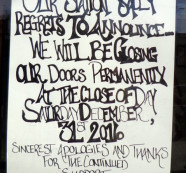 OUR STATION SADLY
REGRETS TO ANNOUNCE-
WE WILL BE CLOSING
OUR DOORS PERMANENTLY
AT THE CLOSE OF DAY
SATURDAY DECEMBER,
31st 2016
SINCEREST APOLOGIES AND THANKS
FOR THE CONTINUED
SUPPORT